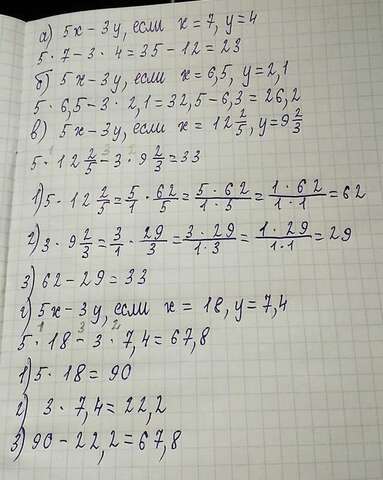 а) 5x - 3y, если x = 7, y = 4
5 · 7 - 3 · 4 = 35 - 12 = 23
б) 5x - 3y, если x = 6,5, y = 2,1
5 · 6,5 - 3 · 2,1 = 32,5 - 6,3 = 26,2
в) 5x - 3y, если x = 12 2/5, y = 9 2/3
5 · 12 2/5 - 3 · 9 2/3 = 33
1) 5 · 12 2/5 = 5/1 · 62/5 = 5 · 62/1 · 5 = 1 · 62/1 · 1 = 62
2) 3 · 9 2/3 = 3/1 · 29/3 = 3 · 29/1 · 3 = 1 · 29/1 · 1 = 29
3) 62 - 29 = 33
г) 5x - 3y, если x = 18, y = 7,4
1 3 2
5 · 18 - 3 · 7,4 = 67,8
1) 5 · 18 = 90
2) 3 · 7,4 = 22,2
3) 90 - 22,2 = 67,8